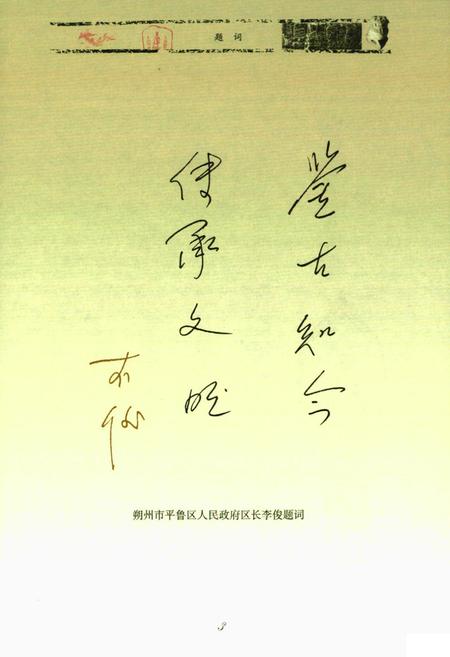 题 词
鉴古知今
传承文明
李俊
朔州市平鲁区人民政府区长李俊题词
3